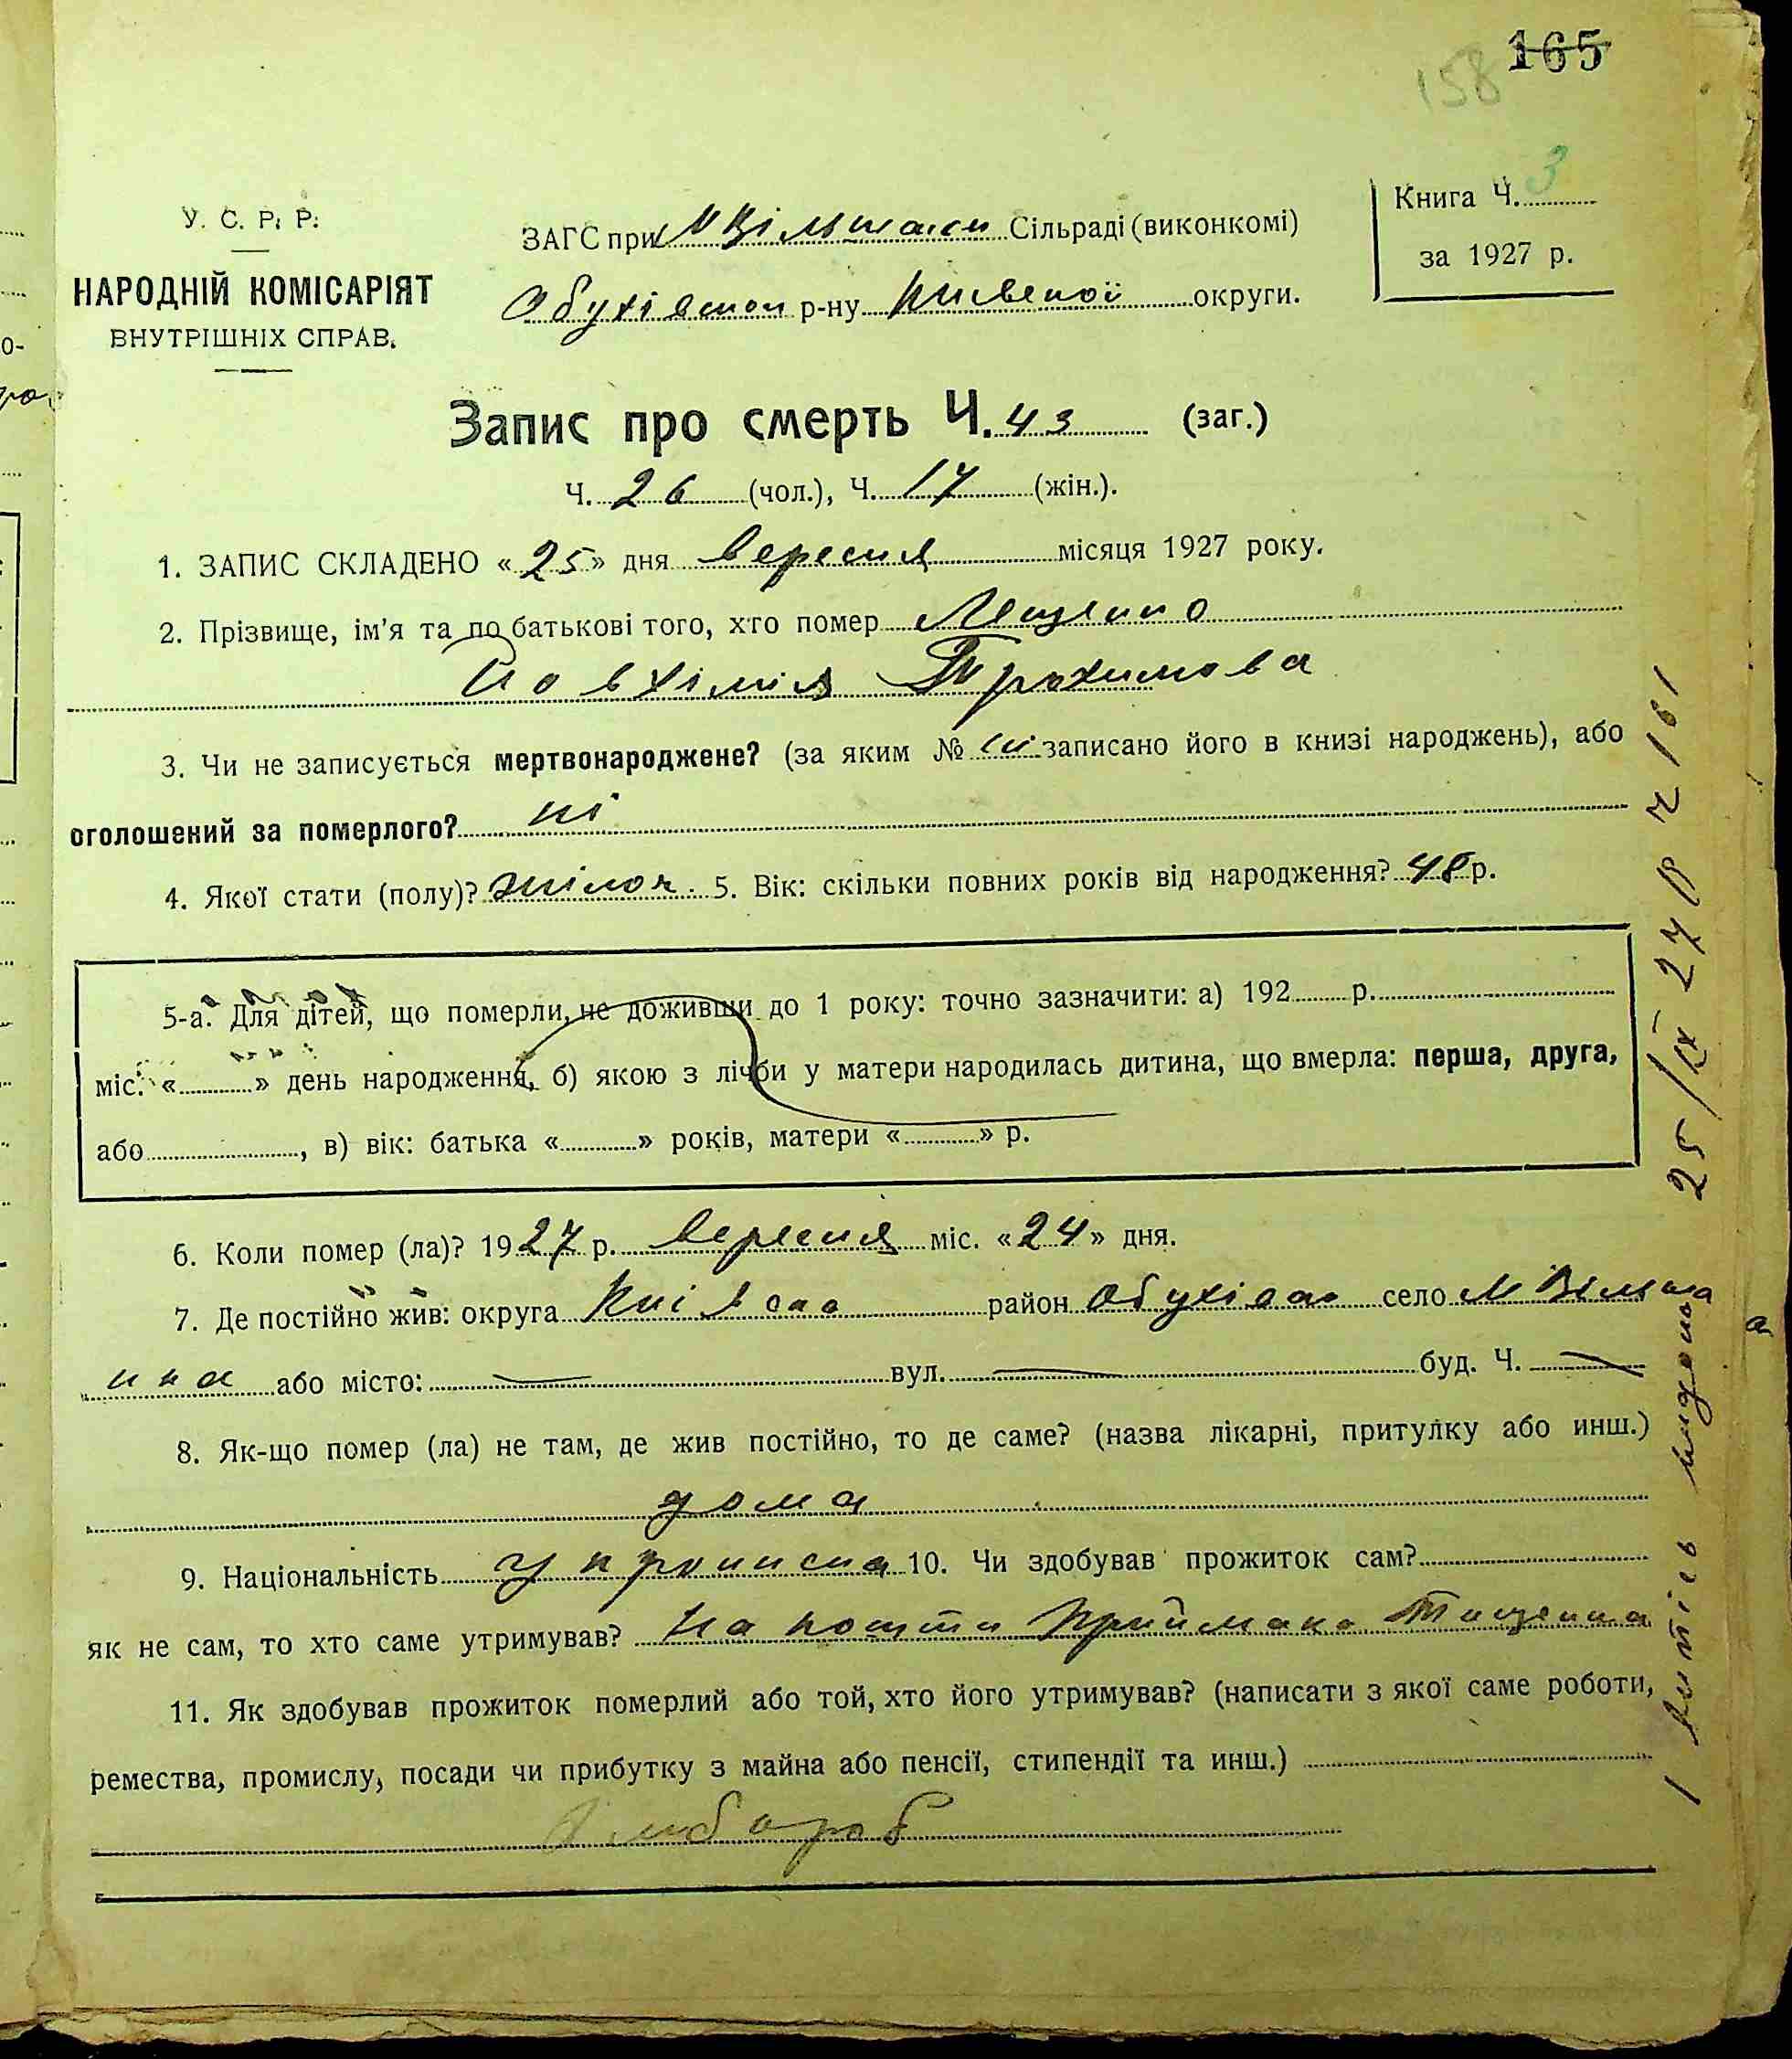 165
158
У. С. Р. Р.
НАРОДНІЙ КОМІСАРІЯТ
ВНУТРІШНІХ СПРАВ.
ЗАГС при М Вільшаки Сільраді (виконкомі)
Обухівскої р-ну Київської округи.
Книга Ч. 3
за 1927 р.
Запис про смерть Ч. 43 (заг.)
Ч. 26 (чол.), Ч. 17 (жін.).
1. ЗАПИС СКЛАДЕНО «25» дня вересня місяця 1927 року.
2. Прізвище, ім'я та по батькові того, хто помер
Трохимова
3. Чи не записується мертвонароджене? (за яким № записано його в книзі народжень), або
оголошений за померлого? ні
4. Якої стати (полу)? жіноч. 5. Вік: скільки повних років від народження? 48 р.
5-а. Для дітей, що померли, не доживши до 1 року: точно зазначити: а) 192 р.
міс. « » день народження, б) якою з лічби у матери народилась дитина, що вмерла: перша, друга,
або , в) вік: батька « » років, матери « » р.
6. Коли помер (ла)? 1927 р. вересня міс. «24» дня.
7. Де постійно жив: округа район село М Вільша
нка або місто: — вул. — буд. Ч. —
8. Як-що помер (ла) не там, де жив постійно, то де саме? (назва лікарні, притулку або инш.)
дома
9. Національність українска 10. Чи здобував прожиток сам?
як не сам, то хто саме утримував? На кошти приймака Тищенка
11. Як здобував прожиток померлий або той, хто його утримував? (написати з якої саме роботи,
ремества, промислу, посади чи прибутку з майна або пенсії, стипендії та инш.)
Хлібороб
25/IX 27 р ч 161